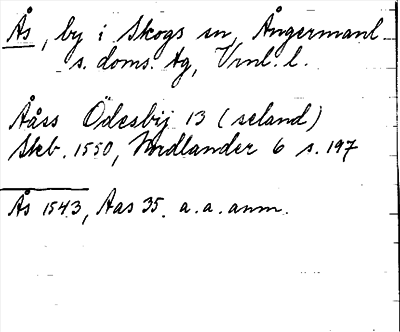 Ås, by i Skogs sn, Ångermanl.
s. doms. tg, Vrnl. l.
Ååss Ödesbij 13 (seland)
Skb. 1550, Nordlander 6 s. 197
Ås 1543, Aas 35. a. a. anm.